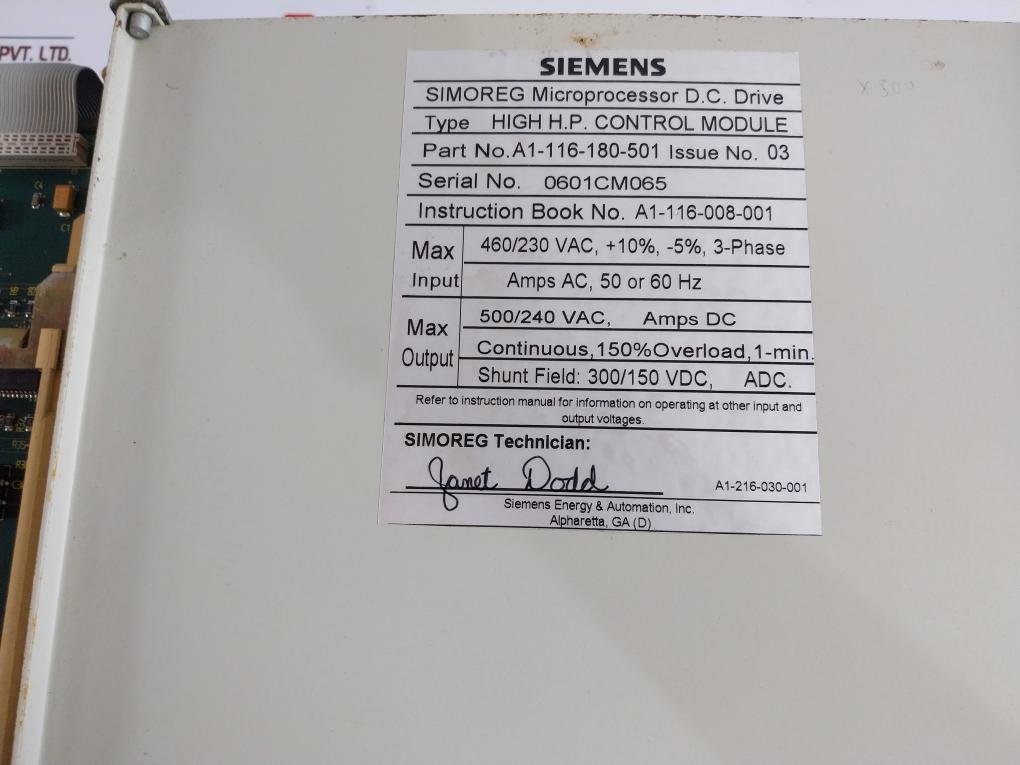 PVT. LTD.
SIEMENS
SIMOREG Microprocessor D.C. Drive
Type HIGH H.P. CONTROL MODULE
Part No. A1-116-180-501 Issue No. 03
Serial No. 0601CM065
Instruction Book No. A1-116-008-001
Max Input
460/230 VAC, +10%, -5%, 3-Phase
Amps AC, 50 or 60 Hz
Max Output
500/240 VAC, Amps DC
Continuous,150%Overload,1-min.
Shunt Field: 300/150 VDC, ADC.
Refer to instruction manual for information on operating at other input and
output voltages.
SIMOREG Technician:
Janet Dodd
A1-216-030-001
Siemens Energy & Automation, Inc.
Alpharetta, GA (D)
X300
C4
C1